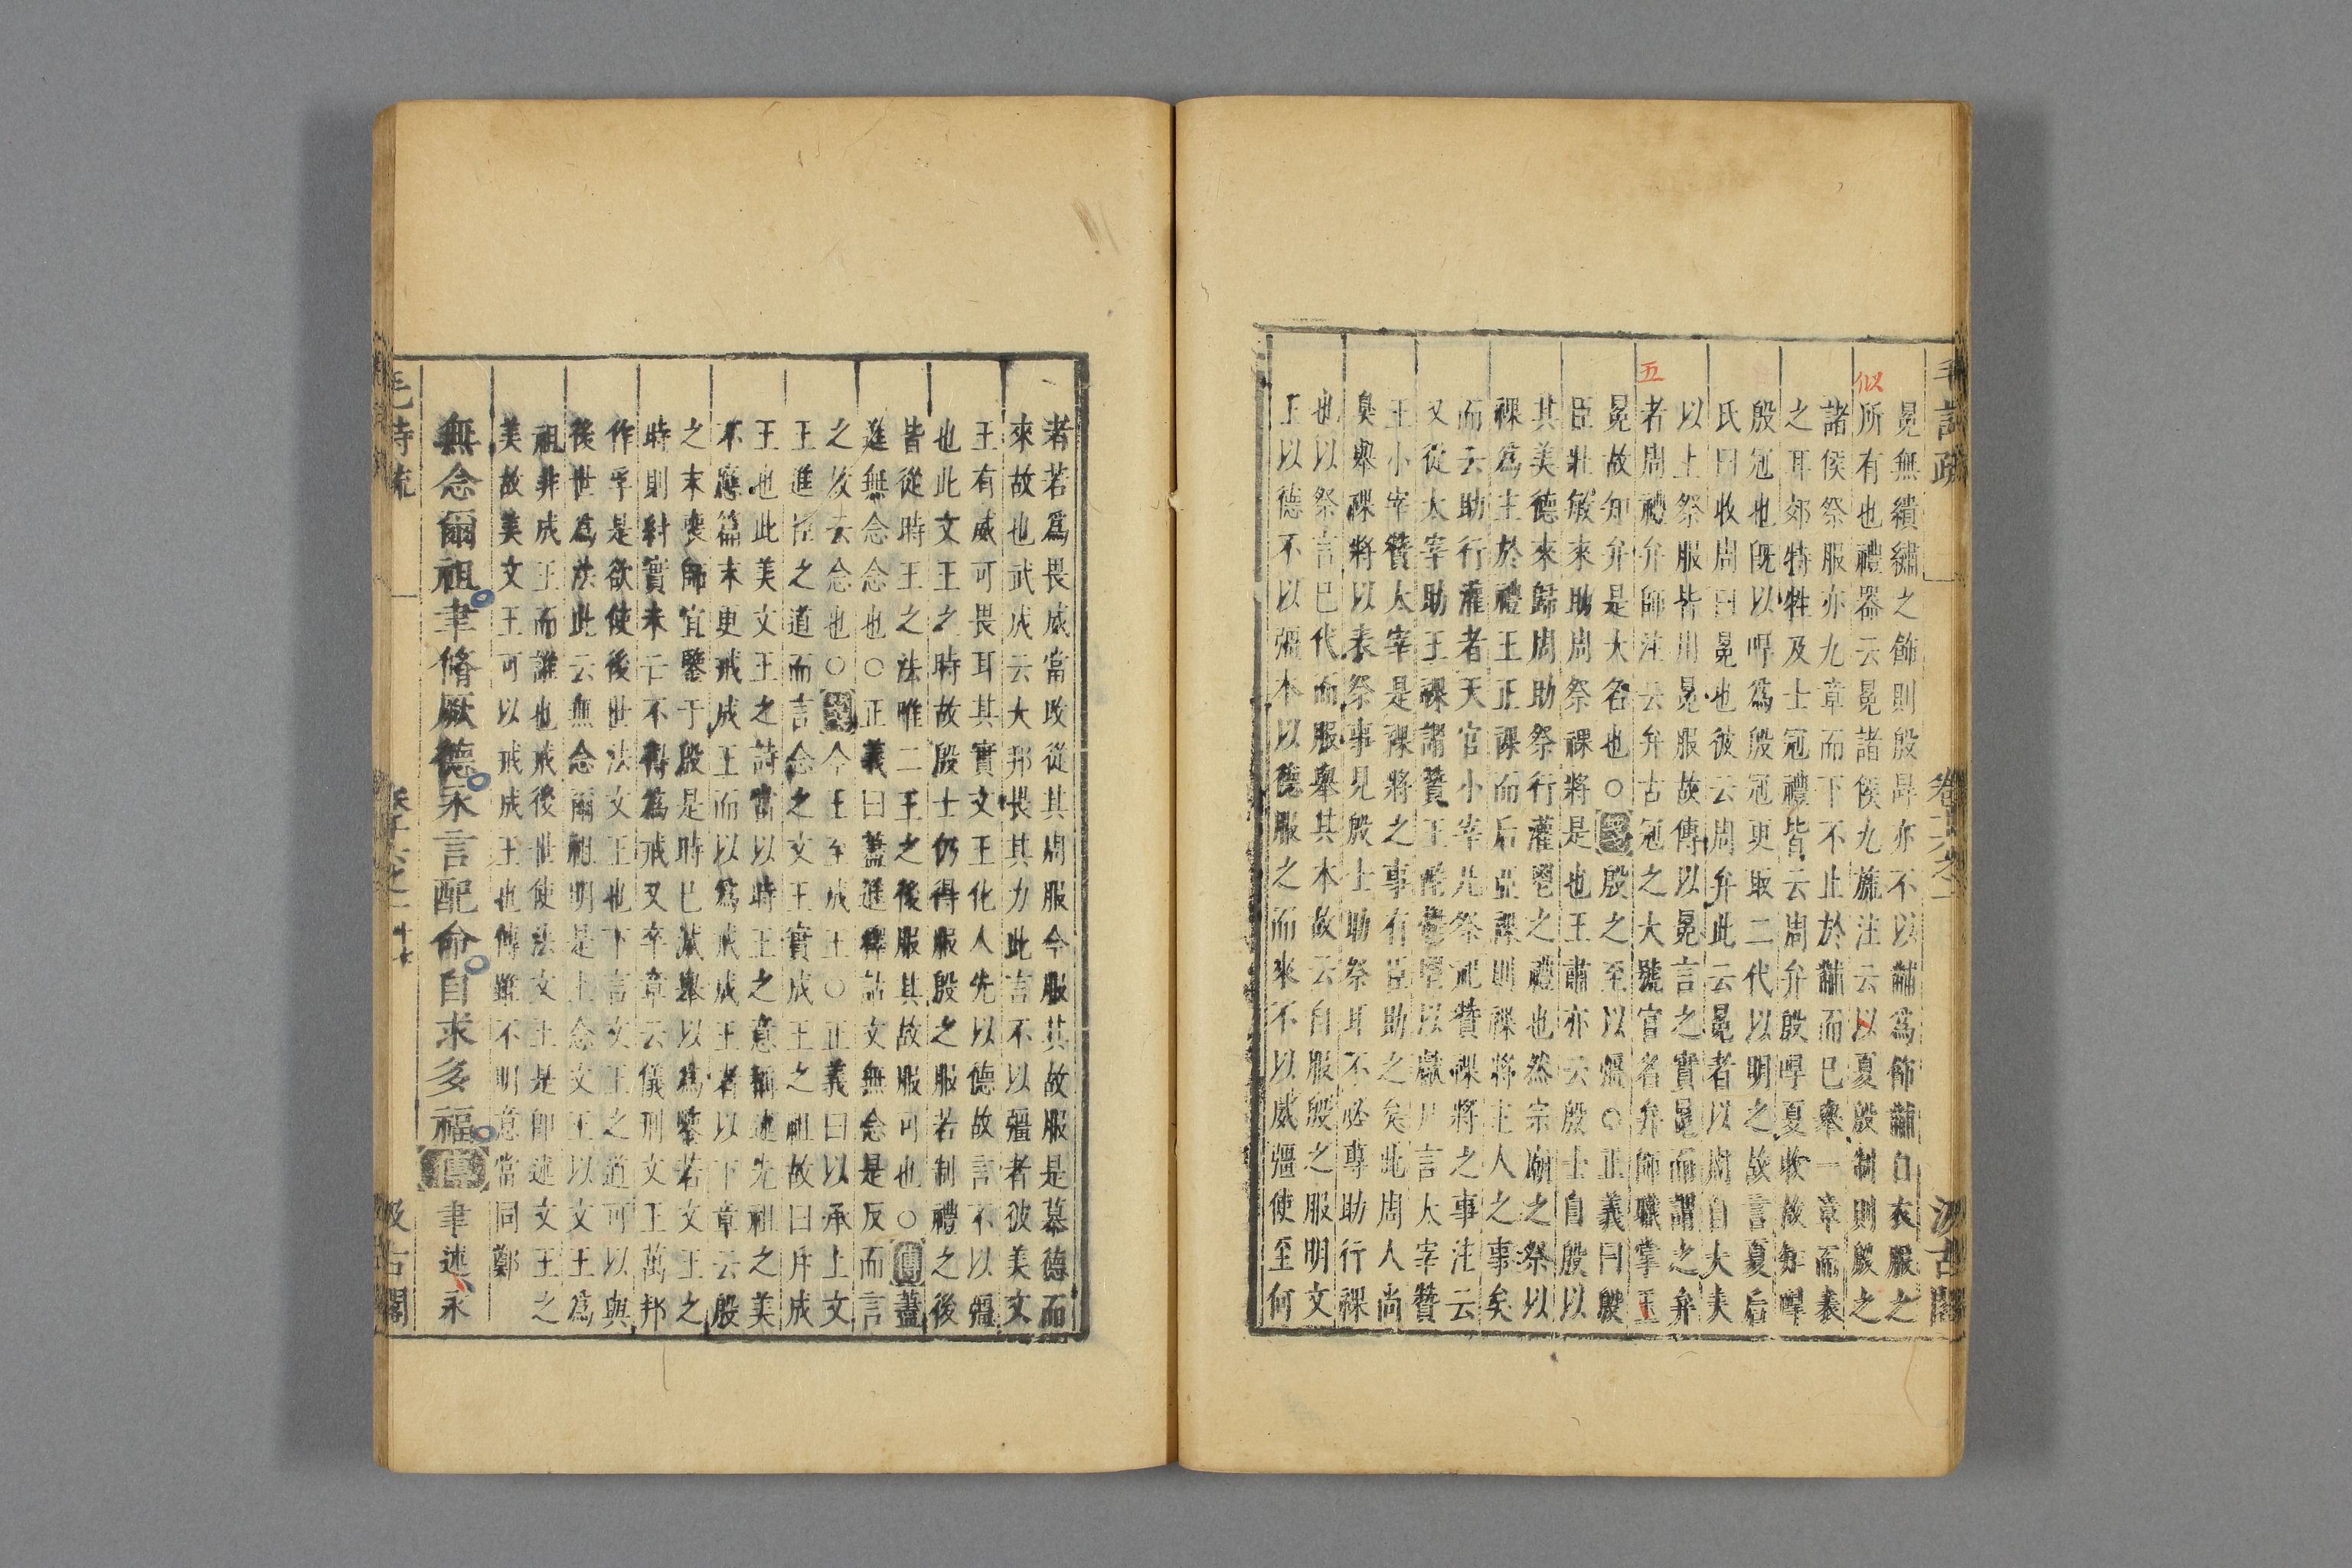 毛詩疏
卷十六之一
汲古閣
似
五
冕無繢繡之飾則殷冔亦不以黼爲飾黼自衣服之
所有也禮器云冕諸侯九旒注云以夏殷制則殷之
諸侯祭服亦九章而下不止於黼而已舉一章而表
之耳郊特牲及士冠禮皆云周弁殷冔夏收故知冔
殷冠也旣以冔爲殷冠更取二代以明之故言夏后
氏曰收周曰冕也彼云周弁此云冕者以周自大夫
以上祭服皆用冕服故傳以冕言之實冕而謂之弁
者周禮弁師注云弁古冠之大號官名弁師職掌王
冕故知弁是大名也○箋殷之至以彊○正義曰殷
臣壯敏來助周祭祼將是也王肅亦云殷士自殷以
其美德來歸周助祭行灌鬯之禮也然宗廟之祭以
祼爲主於禮王正祼而后亞祼則祼將主人之事矣
而云助行灌者天官小宰凡祭祀贊祼將之事注云
又從太宰助王祼謂贊王酌鬱鬯以獻尸言大宰贊
王小宰贊大宰是祼將之事有臣助之矣此周人尚
臭舉祼將以表祭事見殷士助祭耳不必專助行祼
也以祭言已代而服舉其本故云自服殷之服明文
王以德不以彊本以德服之而來不以威彊使至何
者若爲畏威當改從其周服今服其故服是慕德而
來故也武成云大邦畏其力此言不以彊者彼美文
王有威可畏耳其實文王化人先以德故言不以彊
也此文王之時故殷士仍得服殷之服若制禮之後
皆從時王之法唯二王之後服其故服可也○傳蓋
進無念念也○正義曰蓋進釋詁文無念是反而言
之故云念也○箋今王至成王○正義曰以承上文
王進臣之道而言念之文王實成王之祖故曰斥成
王也此美文王之詩當以時王之意稱述先祖之美
不應篇末更戒成王而以爲戒成王者以下章云殷
之末喪師宜鑒于殷是時已滅舉以爲鑒若文王之
時則紂實未亡不得爲戒又卒章云儀刑文王萬邦
作孚是欲使後世法文王也下言文王之道可以與
後世爲法此云無念爾祖明是上念文王以文王爲
祖非成王而誰也戒後世使法文王是卽述文王之
美故美文王可以戒成王也傳雖不明意當同鄭
無念爾祖聿脩厥德永言配命自求多福傳聿述永
毛詩疏
卷十六之一
十七
汲古閣